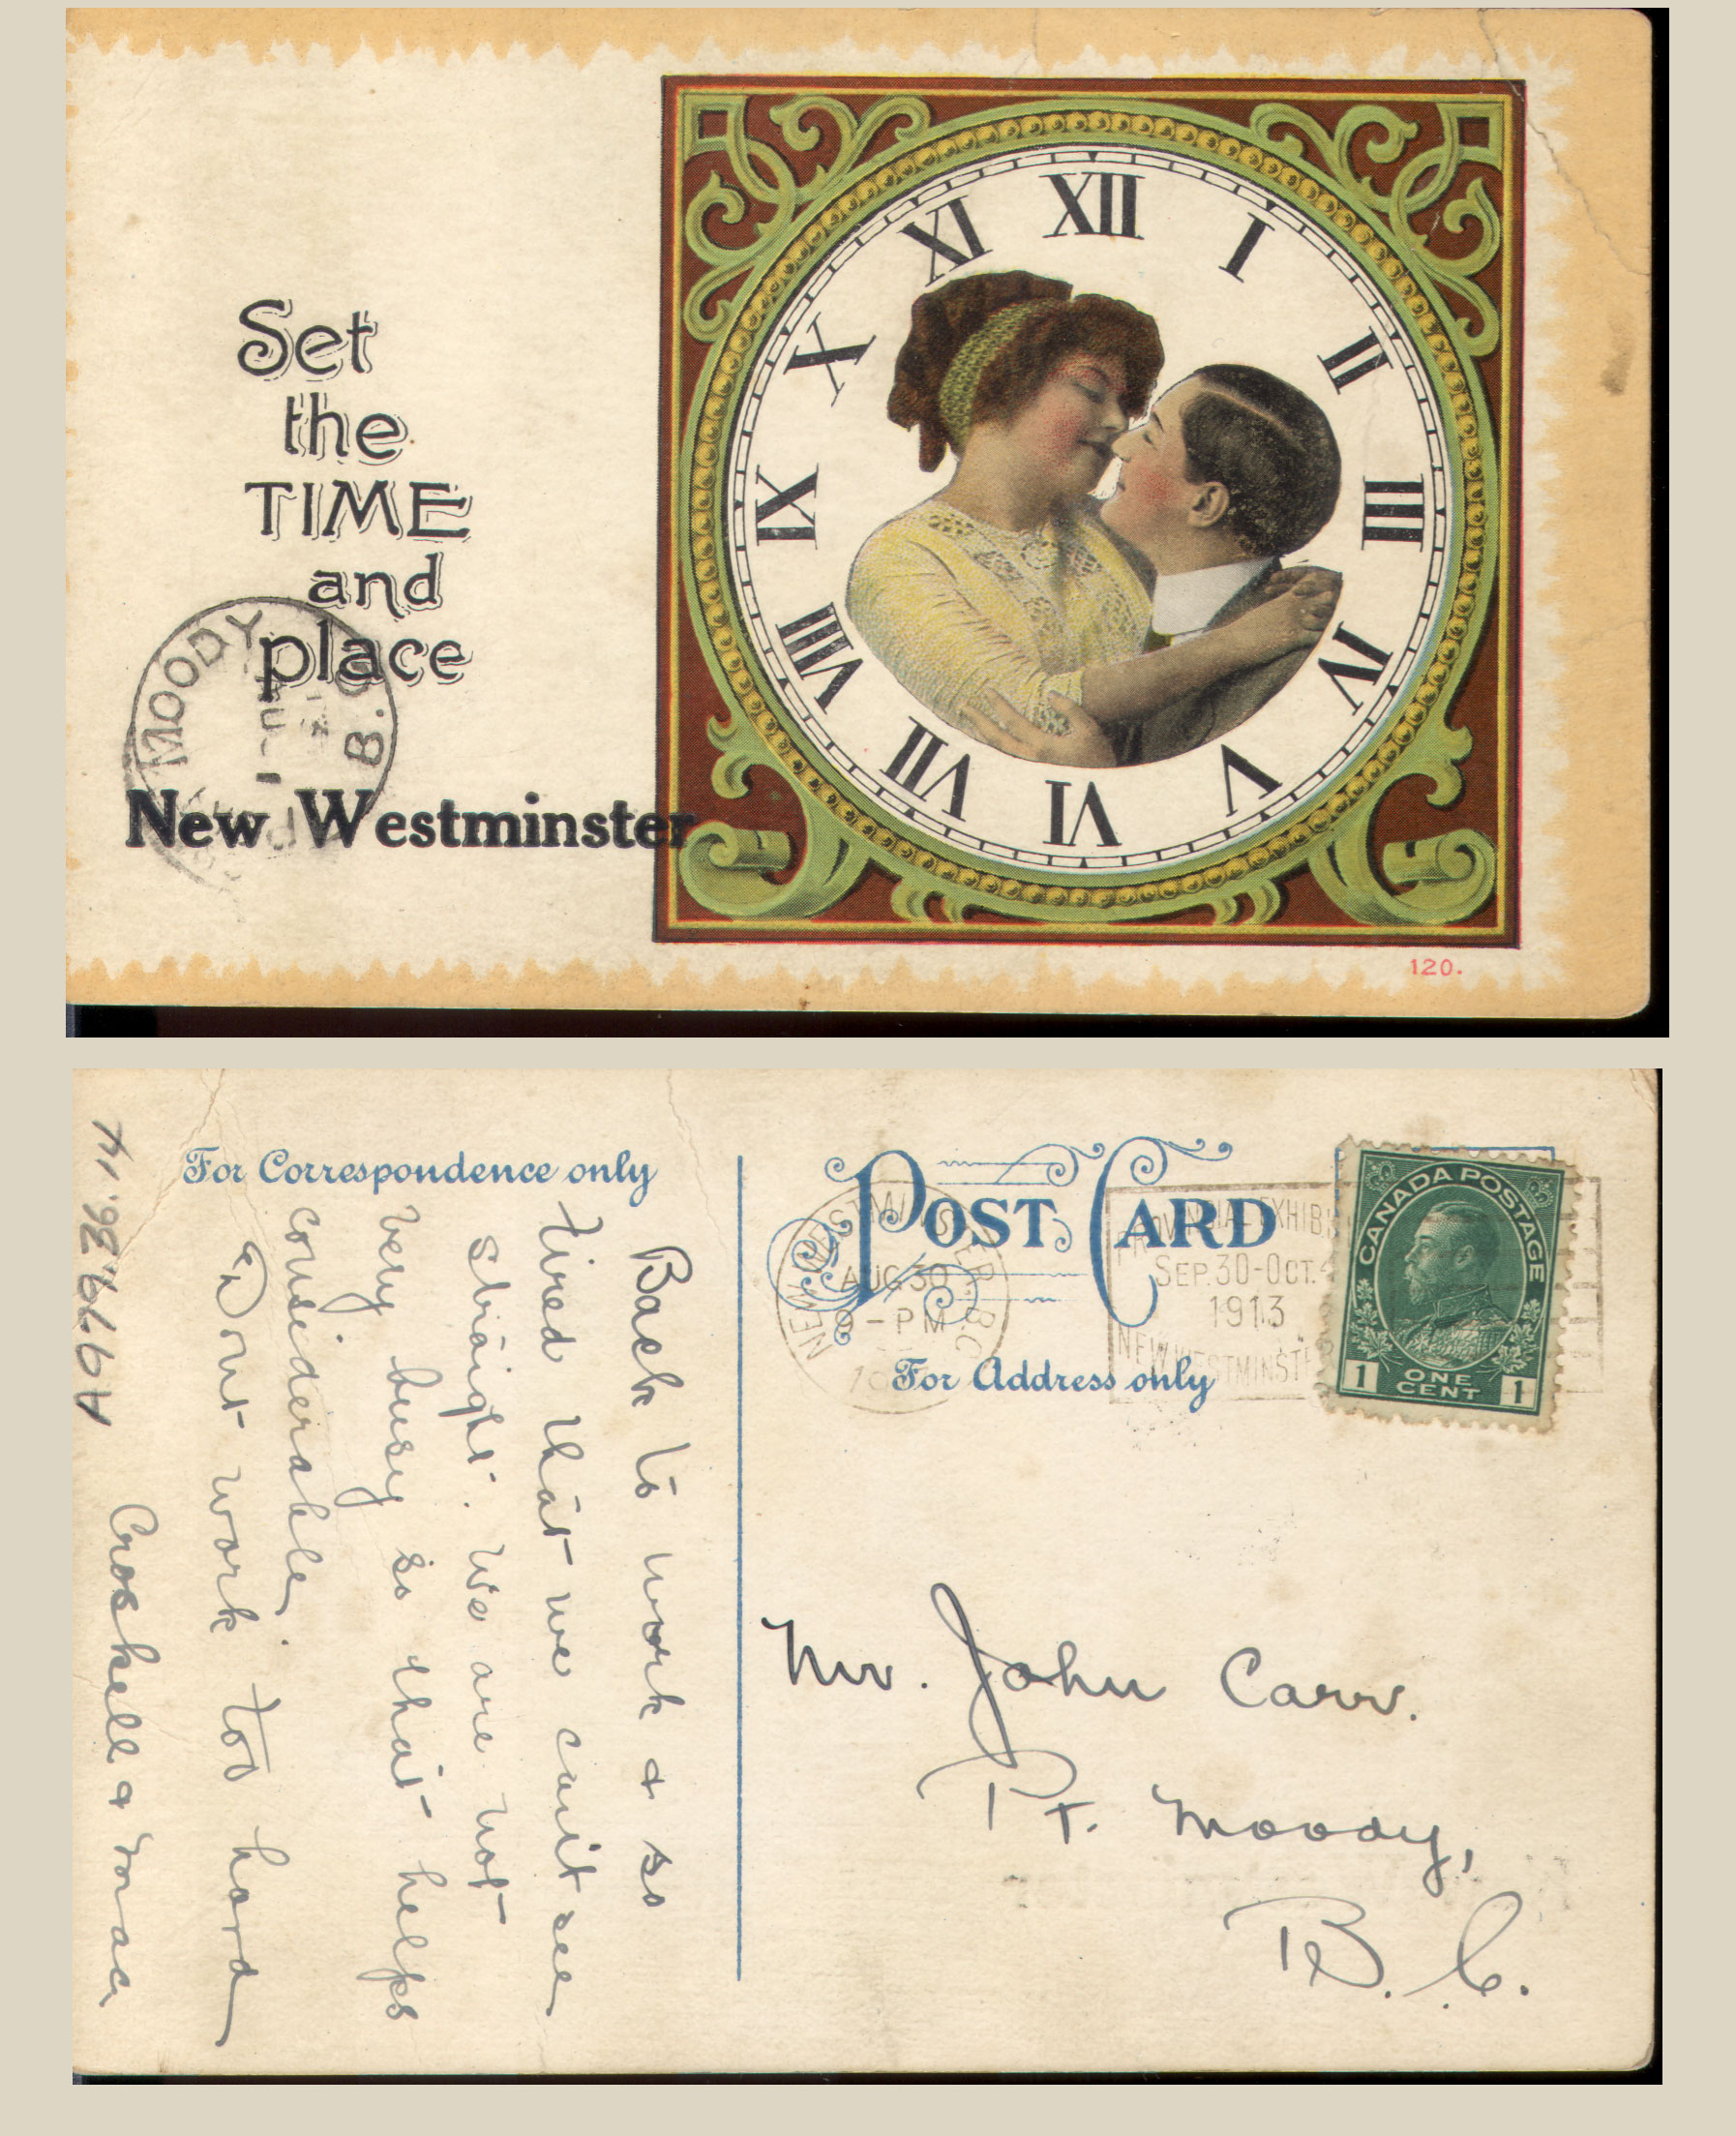 Set
the
TIME
and
place
New Westminster
MOODY
B.C.
XII
I
II
III
IV
V
VI
VII
VIII
IX
X
XI
120.
For Correspondence only
POST CARD
For Address only
NEW WESTMINSTER. B.C.
AUG 30
9 - PM
PROVINCIAL EXHIB
SEP. 30-OCT. 4
1913
NEW WESTMINST
CANADA POSTAGE
1 ONE CENT 1
Back to work & so
tired that we can't see
straight. We are not
very busy so that helps
considerable.
Don't work too hard
Croskell & Mac
A976.26.14
Mr. John Carr.
Pt. Moody,
B.C.